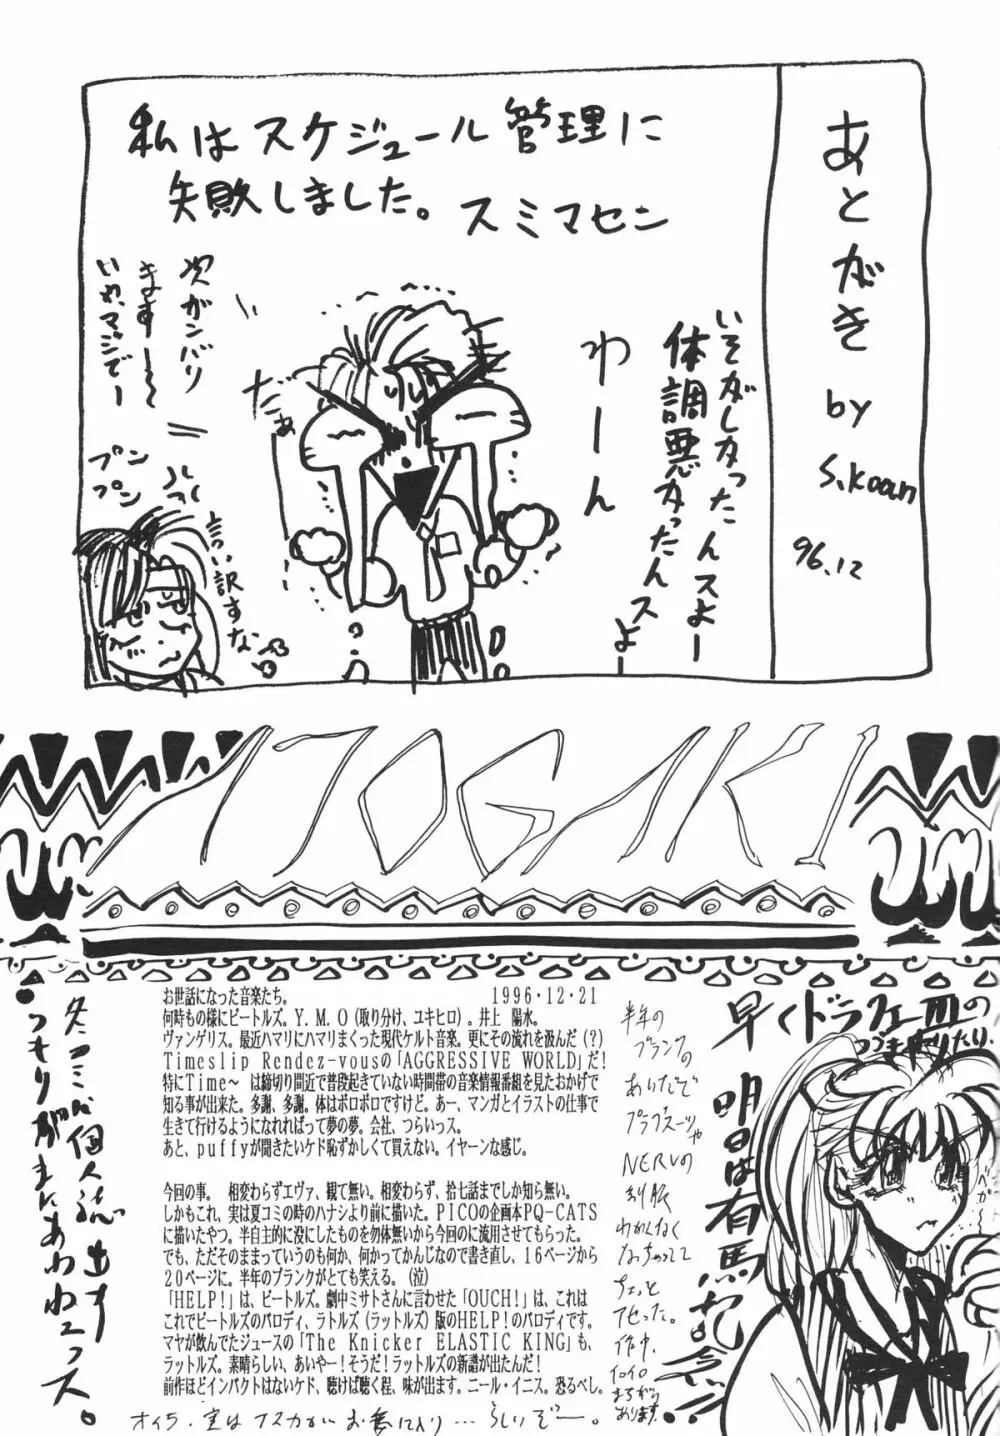 あとがき
by
S.Koan
96.12
私はスケジュール管理に
失敗しました。スミマセン
いそがしかったんスよー
体調悪かったんスよー
わーん
だぁ
次ガンバリ
ます〜〜
いや、マジでー
言い訳すな
プン
プン
ATOGAKI
お世話になった音楽たち。 1996・12・21
何時もの様にビートルズ。Y.M.O(取り分け、ユキヒロ)。井上 陽水。
ヴァンゲリス。最近ハマリにハマリまくった現代ケルト音楽。更にその流れを汲んだ(?)
Timeslip Rendez-vousの「AGGRESSIVE WORLD」だ!
特にTime〜 は締切り間近で普段起きていない時間帯の音楽情報番組を見たおかげで
知る事が出来た。多謝、多謝。体はボロボロですけど。あー、マンガとイラストの仕事で
生きて行けるようになれればって夢の夢。会社、つらいっス。
あと、puffyが聞きたいケド恥ずかしくて買えない。イヤーンな感じ。
今回の事。 相変わらずエヴァ、観て無い。相変わらず、拾七話までしか知ら無い。
しかもこれ、実は夏コミの時のハナシより前に描いた。PICOの企画本PQ-CATS
に描いたやつ。半自主的に没にしたものを勿体無いから今回のに流用させてもらった。
でも、ただそのままっていうのも何か、何かってかんじなので書き直し、16ページから
20ページに。半年のブランクがとても笑える。(泣)
「HELP!」は、ビートルズ。劇中ミサトさんに言わせた「OUCH!」は、これは
これでビートルズのパロディ、ラトルズ(ラットルズ)版のHELP!のパロディです。
マヤが飲んでたジュースの「The Knicker ELASTIC KING」も、
ラットルズ。素晴らしい、あいやー!そうだ!ラットルズの新譜が出たんだ!
前作ほどインパクトはないケド、聴けば聴く程、味が出ます。ニール・イニス。恐るべし。
オイラ、実はアスカがいお気に入り…らしいぞー。
冬コミに個人誌出す
つもりが間にあわねっス。
早くドラフェⅢの
つづき作りたり。
明日は有馬記念!!
半年の
ブランクの
あいだで
プラグスーツや
NERVの
制服
わかんなく
なっちゃってて
ちょっと
アセった。
作中、
イロイロ
まちがって
おります。